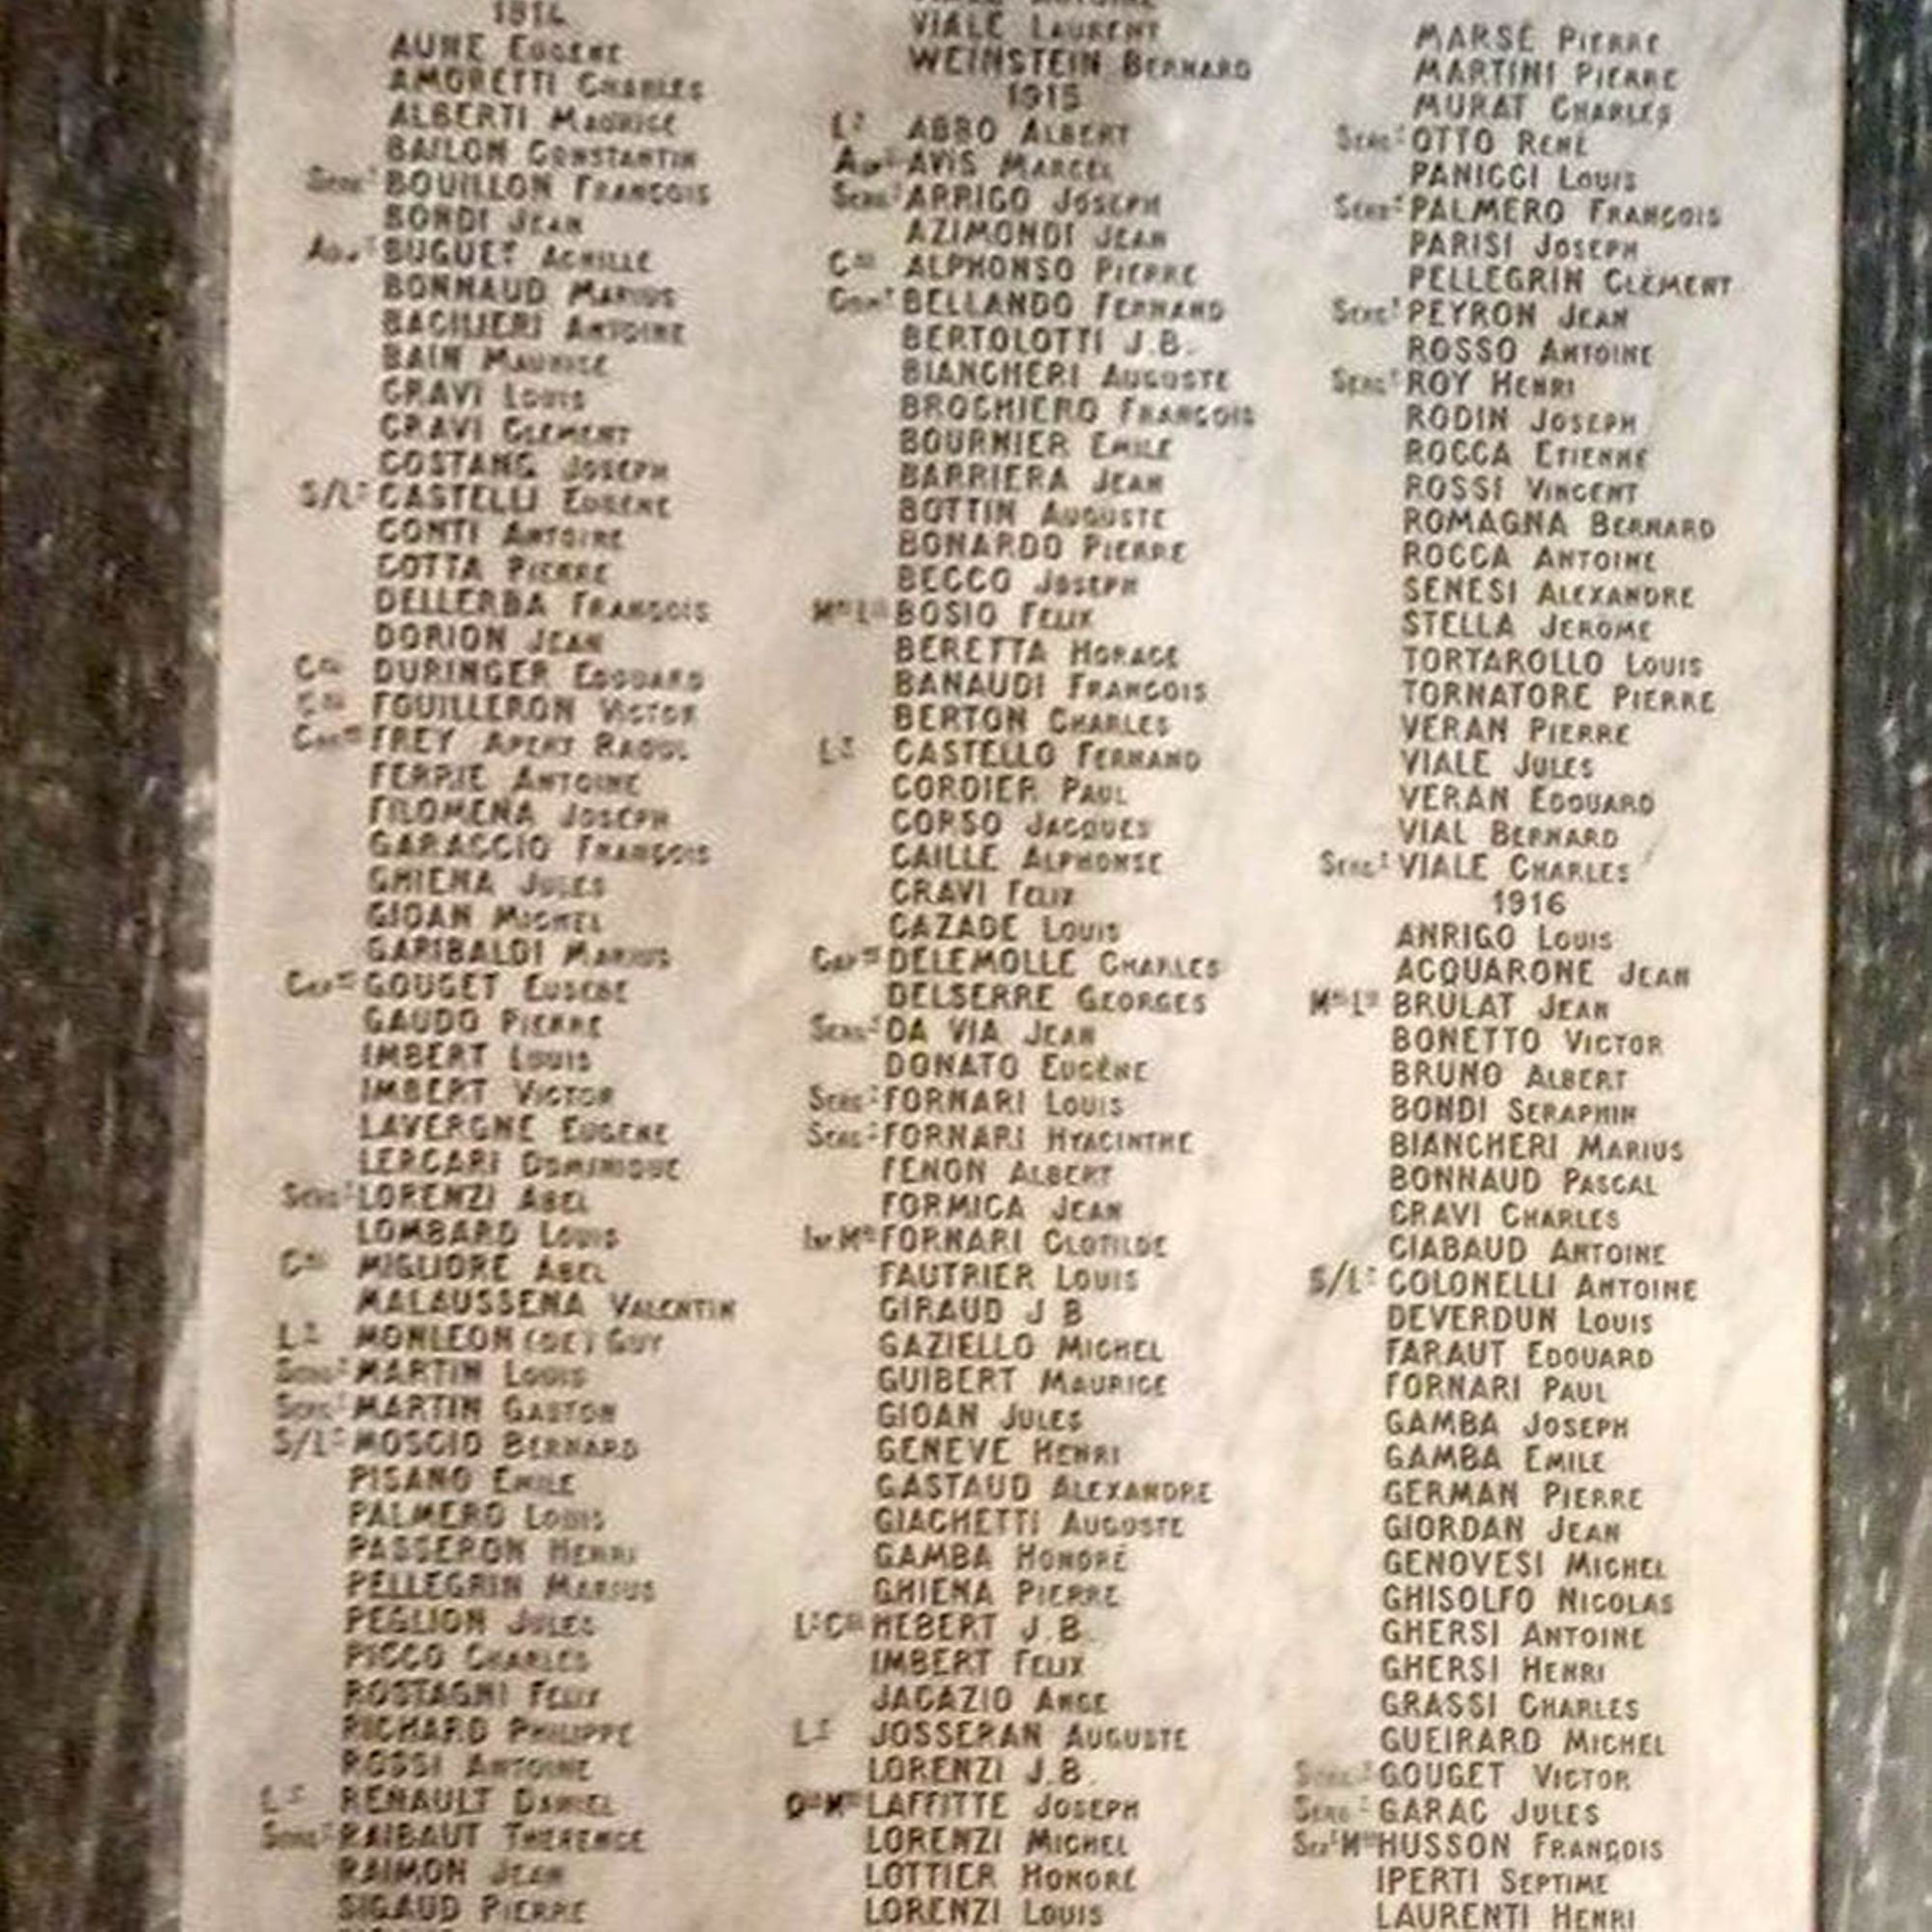 1914
AUNE EUGENE
AMORETTI CHARLES
ALBERTI MAURICE
BAILON CONSTANTIN
SERGT BOUILLON FRANÇOIS
BONDI JEAN
ADJT BUGUET ACHILLE
BONNAUD MARIUS
BACILIERI ANTOINE
BAIN MAURICE
CRAVI LOUIS
CRAVI CLEMENT
COSTANG JOSEPH
S/LT CASTELLI EUGENE
CONTI ANTOINE
COTTA PIERRE
DELLERBA FRANÇOIS
DORION JEAN
CAL DURINGER EDOUARD
CAL FOUILLERON VICTOR
CAPNE FREY APERT RAOUL
FERRIE ANTOINE
FILOMENA JOSEPH
GARACCIO FRANÇOIS
GHIENA JULES
GIOAN MICHEL
GARIBALDI MARIUS
CAPNE GOUGET EUSEBE
GAUDO PIERRE
IMBERT LOUIS
IMBERT VICTOR
LAVERGNE EUGENE
LERCARI DOMINIQUE
SERGT LORENZI ABEL
LOMBARD LOUIS
CAL MIGLIORE ABEL
MALAUSSENA VALENTIN
LT MONLEON (DE) GUY
SERGT MARTIN LOUIS
SERGT MARTIN GASTON
S/LT MOSCIO BERNARD
PISANO EMILE
PALMERO LOUIS
PASSERON HENRI
PELLEGRIN MARIUS
PEGLION JULES
PICCO CHARLES
ROSTAGNI FELIX
RICHARD PHILIPPE
ROSSI ANTOINE
LT RENAULT DANIEL
SERGT RAIBAUT THERENCE
RAIMON JEAN
SIGAUD PIERRE
VIALE LAURENT
WEINSTEIN BERNARD
1915
LT ABBO ALBERT
ADJT AVIS MARCEL
SERGT ARRIGO JOSEPH
AZIMONDI JEAN
CAL ALPHONSO PIERRE
COMT BELLANDO FERNAND
BERTOLOTTI J.B.
BIANCHERI AUGUSTE
BROCHIERO FRANÇOIS
BOURNIER EMILE
BARRIERA JEAN
BOTTIN AUGUSTE
BONARDO PIERRE
BECCO JOSEPH
MAL LIS BOSIO FELIX
BERETTA HORACE
BANAUDI FRANÇOIS
BERTON CHARLES
LT CASTELLO FERNAND
CORDIER PAUL
CORSO JACQUES
CAILLE ALPHONSE
CRAVI FELIX
CAZADE LOUIS
CAPNE DELEMOLLE CHARLES
DELSERRE GEORGES
SERGT DA VIA JEAN
DONATO EUGÈNE
SERGT FORNARI LOUIS
SERGT FORNARI HYACINTHE
FENON ALBERT
FORMICA JEAN
INF MRE FORNARI CLOTILDE
FAUTRIER LOUIS
GIRAUD J B
GAZIELLO MICHEL
GUIBERT MAURICE
GIOAN JULES
GENEVE HENRI
GASTAUD ALEXANDRE
GIACHETTI AUGUSTE
GAMBA HONORÉ
GHIENA PIERRE
LT CEL HEBERT J.B.
IMBERT FELIX
JACAZIO ANGE
LT JOSSERAN AUGUSTE
LORENZI J.B.
LAFFITTE JOSEPH
LORENZI MICHEL
LOTTIER HONORÉ
LORENZI LOUIS
MARSÉ PIERRE
MARTINI PIERRE
MURAT CHARLES
SERGT OTTO RENÉ
PANICCI LOUIS
SERGT PALMERO FRANÇOIS
PARISI JOSEPH
PELLEGRIN CLÉMENT
SERGT PEYRON JEAN
ROSSO ANTOINE
SERGT ROY HENRI
RODIN JOSEPH
ROCCA ETIENNE
ROSSI VINCENT
ROMAGNA BERNARD
ROCCA ANTOINE
SENESI ALEXANDRE
STELLA JEROME
TORTAROLLO LOUIS
TORNATORE PIERRE
VERAN PIERRE
VIALE JULES
VERAN EDOUARD
VIAL BERNARD
SERGT VIALE CHARLES
1916
ANRIGO LOUIS
ACQUARONE JEAN
MAL LIS BRULAT JEAN
BONETTO VICTOR
BRUNO ALBERT
BONDI SERAPHIN
BIANCHERI MARIUS
BONNAUD PASCAL
CRAVI CHARLES
CIABAUD ANTOINE
S/LT COLONELLI ANTOINE
DEVERDUN LOUIS
FARAUT EDOUARD
FORNARI PAUL
GAMBA JOSEPH
GAMBA EMILE
GERMAN PIERRE
GIORDAN JEAN
GENOVESI MICHEL
GHISOLFO NICOLAS
GHERSI ANTOINE
GHERSI HENRI
GRASSI CHARLES
GUEIRARD MICHEL
SERGT GOUGET VICTOR
SERGT GARAC JULES
HUSSON FRANÇOIS
IPERTI SEPTIME
LAURENTI HENRI